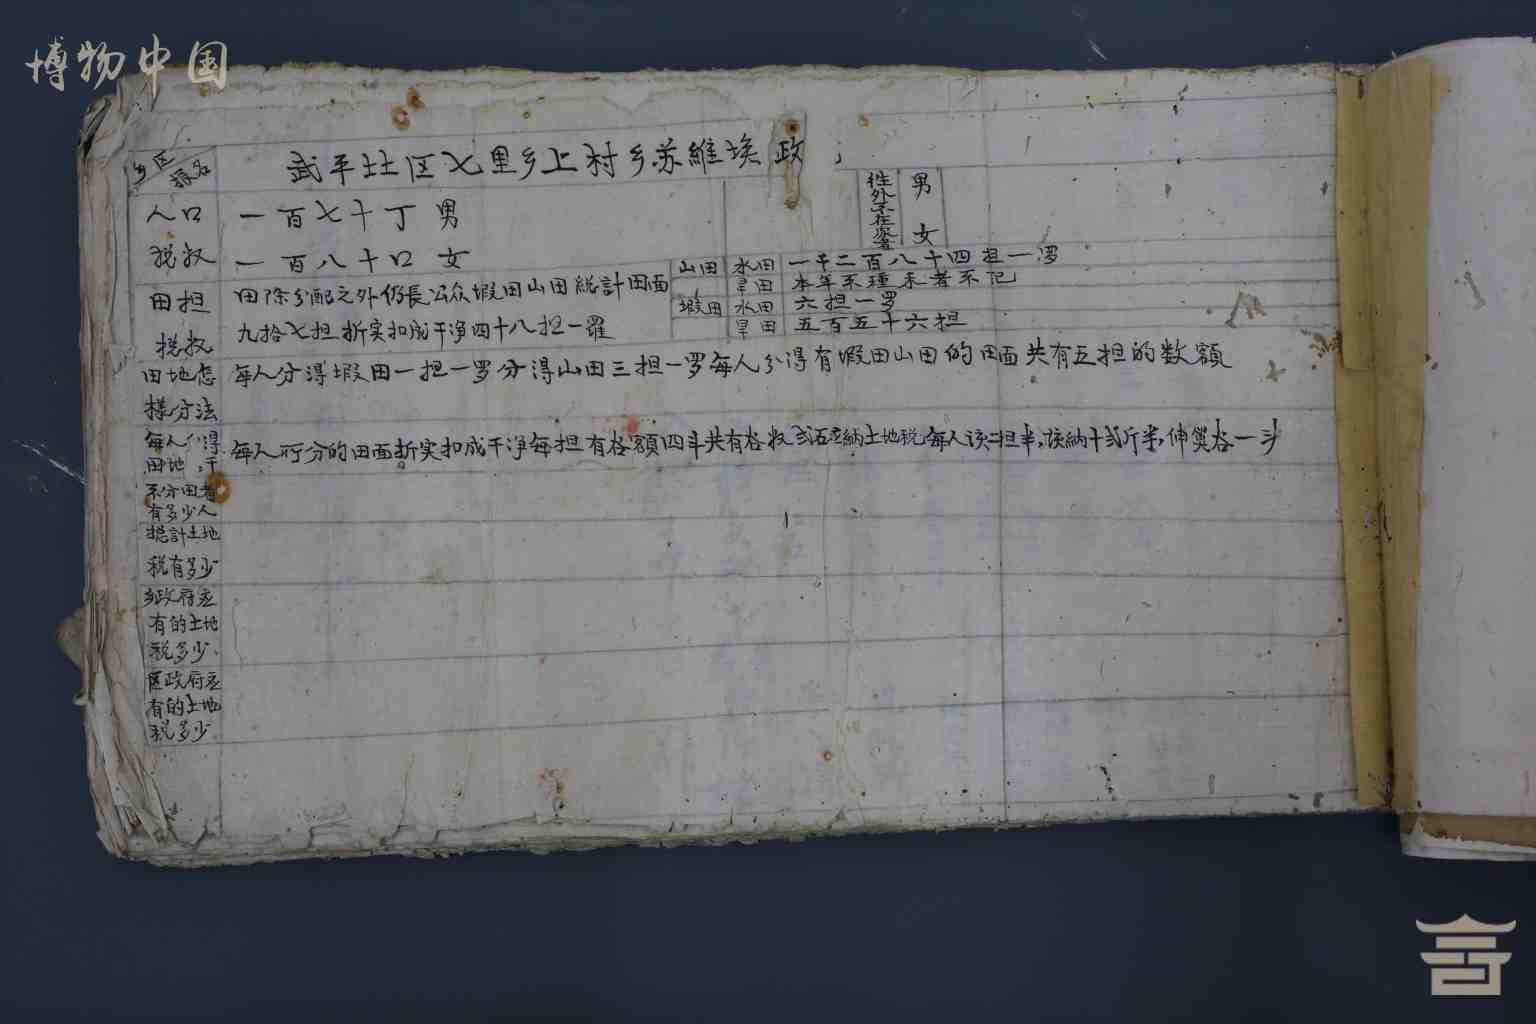 博物中国
乡区
报名
武平壮区七里乡上村乡苏維埃政
人口
一百七十丁 男
税权
一百八十口 女
往外不在家者
男
女
田担
田除分配之外仍長公众塅田山田総計田面
总权
九拾七担折实扣成干净四十八担一羅
山田 水田 一千二百八十四担一罗
旱田 本年不種禾者不记
塅田 水田 六担一罗
旱田 五百五十六担
田地怎
樣分法
每人分得塅田一担一罗分得山田三担一罗每人分得有塅田山田的田面共有五担的数額
每人分得
田地
每人所分的田面折实扣成干净每担有谷額四斗共有谷 納土地税每人该二担半,该納十弍斤半,伸 谷一斗
不分田者
有多少人
总計土地
税有多少
乡政府应
有的土地
税多少
区政府应
有的土地
税多少